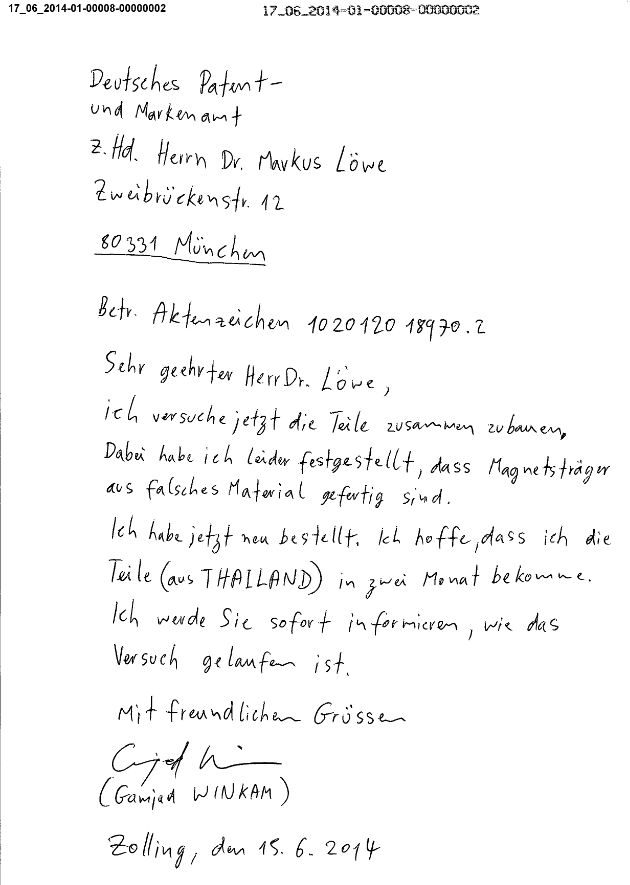 17_06_2014-01-00008-00000002
17_06_2014-01-00008-00000002
Deutsches Patent-
und Markenamt
z.Hd. Herrn Dr. Markus Löwe
Zweibrückenstr. 12
80331 München
Betr. Aktenzeichen 1020120 18970.2
Sehr geehrter Herr Dr. Löwe,
ich versuche jetzt die Teile zusammen zubauen,
Dabei habe ich leider festgestellt, dass Magnetsträger
aus falsches Material gefertig sind.
Ich habe jetzt neu bestellt. Ich hoffe, dass ich die
Teile (aus THAILAND) in zwei Monat bekomme.
Ich werde Sie sofort informieren, wie das
Versuch gelaufen ist.
Mit freundlichen Grüssen
(Gamjad WINKAM)
Zolling, den 15.6.2014